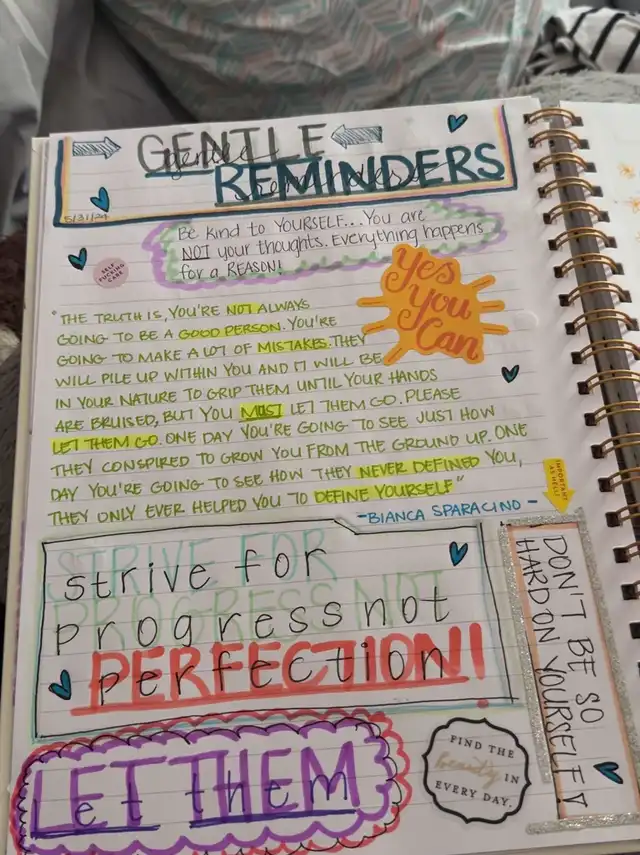 GENTLE
gentle
REMINDERS
reminders
5/31/24
Be kind to YOURSELF... You are
NOT your thoughts. Everything happens
for a REASON!
SELF
FUCKING
CARE
Yes
You
Can
"THE TRUTH IS, YOU'RE NOT ALWAYS
GOING TO BE A GOOD PERSON. YOU'RE
GOING TO MAKE A LOT OF MISTAKES. THEY
WILL PILE UP WITHIN YOU AND IT WILL BE
IN YOUR NATURE TO GRIP THEM UNTIL YOUR HANDS
ARE BRUISED, BUT YOU MUST LET THEM GO. PLEASE
LET THEM GO. ONE DAY YOU'RE GOING TO SEE JUST HOW
THEY CONSPIRED TO GROW YOU FROM THE GROUND UP. ONE
DAY YOU'RE GOING TO SEE HOW THEY NEVER DEFINED YOU,
THEY ONLY EVER HELPED YOU TO DEFINE YOURSELF"
-BIANCA SPARACINO-
IMPORTANT
AS HELL!
STRIVE FOR
strive for
PROGRESS NOT
progress not
PERFECTION!
perfection
DON'T BE SO
HARD ON YOURSELF!
LET THEM
Let them
FIND THE
beauty IN
EVERY DAY.